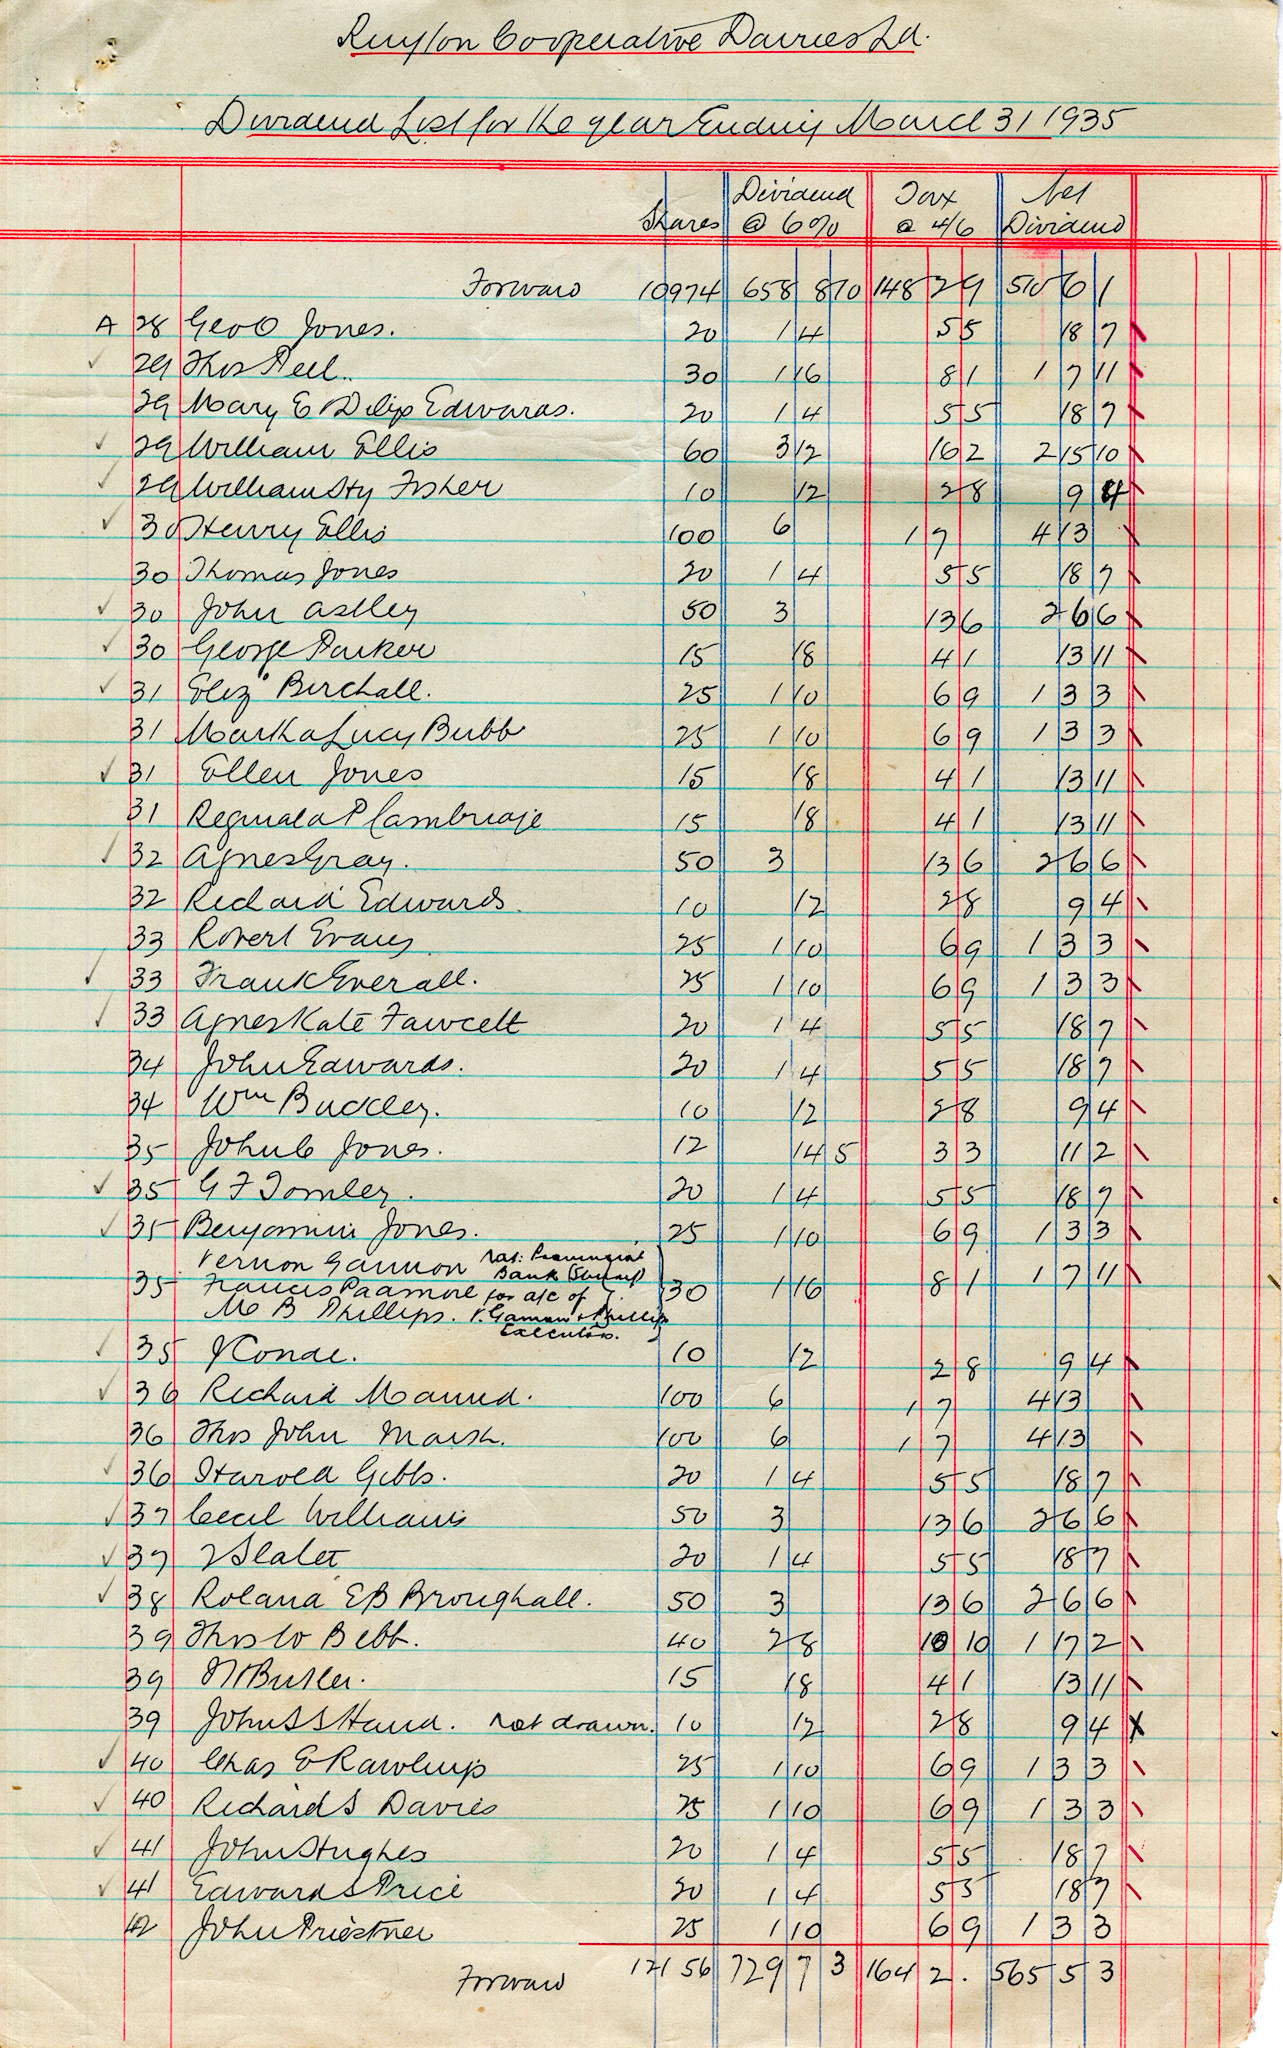 Ruyton Cooperative Dairies Ld.
Dividend List for the year Ending March 31 1935
Shares Dividend @ 6% Tax @ 4/6 Net Dividend
Forward 10974 658 8 10 148 2 9 510 6 1
A 28 Geo O Jones. 20 1 4 5 5 18 7 \
✓ 29 Thos Peel. 30 1 16 8 1 1 7 11 \
29 Mary E & Dilys Edwards. 20 1 4 5 5 18 7 \
✓ 29 William Ellis 60 3 12 16 2 2 15 10 \
✓ 29 William Hy Fisher 10 12 2 8 9 4 \
✓ 30 Henry Ellis 100 6 1 7 4 13 \
30 Thomas Jones 20 1 4 5 5 18 7 \
✓ 30 John Astley 50 3 13 6 2 6 6 \
✓ 30 George Parker 15 18 4 1 13 11 \
✓ 31 Eliz Birchall. 25 1 10 6 9 1 3 3 \
31 Mark & Lucy Bubb 25 1 10 6 9 1 3 3 \
✓ 31 Ellen Jones 15 18 4 1 13 11 \
31 Reginald P Cambridge 15 18 4 1 13 11 \
✓ 32 Agnes Gray. 50 3 13 6 2 6 6 \
32 Richard Edwards. 10 12 2 8 9 4 \
33 Robert Evans 25 1 10 6 9 1 3 3 \
✓ 33 Frank Everall. 25 1 10 6 9 1 3 3 \
✓ 33 Agnes Kate Fawcett 20 1 4 5 5 18 7 \
34 John Edwards. 20 1 4 5 5 18 7 \
34 Wm Buckley. 10 12 2 8 9 4 \
35 John C Jones. 12 14 5 3 3 11 2 \
✓ 35 G F Tomley. 20 1 4 5 5 18 7 \
✓ 35 Benjamin Jones. 25 1 10 6 9 1 3 3 \
Vernon Gannon Nat: Provincial
Bank (Shrewsy)
35 Francis Paamore for a/c of 30 1 16 8 1 1 7 11 \
M B Phillips. V. Gannon & Phillips
Executors.
✓ 35 J Conde. 10 12 2 8 9 4 \
✓ 36 Richard Maund. 100 6 1 7 4 13 \
36 Thos John Marsh. 100 6 1 7 4 13 \
✓ 36 Harold Gibbs. 20 1 4 5 5 18 7 \
✓ 37 Cecil Williams 50 3 13 6 2 6 6 \
✓ 37 Slater 20 1 4 5 5 18 7 \
✓ 38 Roland E B Broughall. 50 3 13 6 2 6 6 \
39 Thos W Bebb. 40 2 8 10 10 1 17 2 \
39 Butler. 15 18 4 1 13 11 \
39 John S S Hand. not drawn. 10 12 2 8 9 4 X
✓ 40 Chas E Rawlings 25 1 10 6 9 1 3 3 \
✓ 40 Richard S Davies 25 1 10 6 9 1 3 3 \
✓ 41 John Hughes 20 1 4 5 5 18 7 \
✓ 41 Edward S Price 20 1 4 5 5 18 7 \
42 John Priestner 25 1 10 6 9 1 3 3
Forward 12156 729 7 3 164 2 . 565 5 3